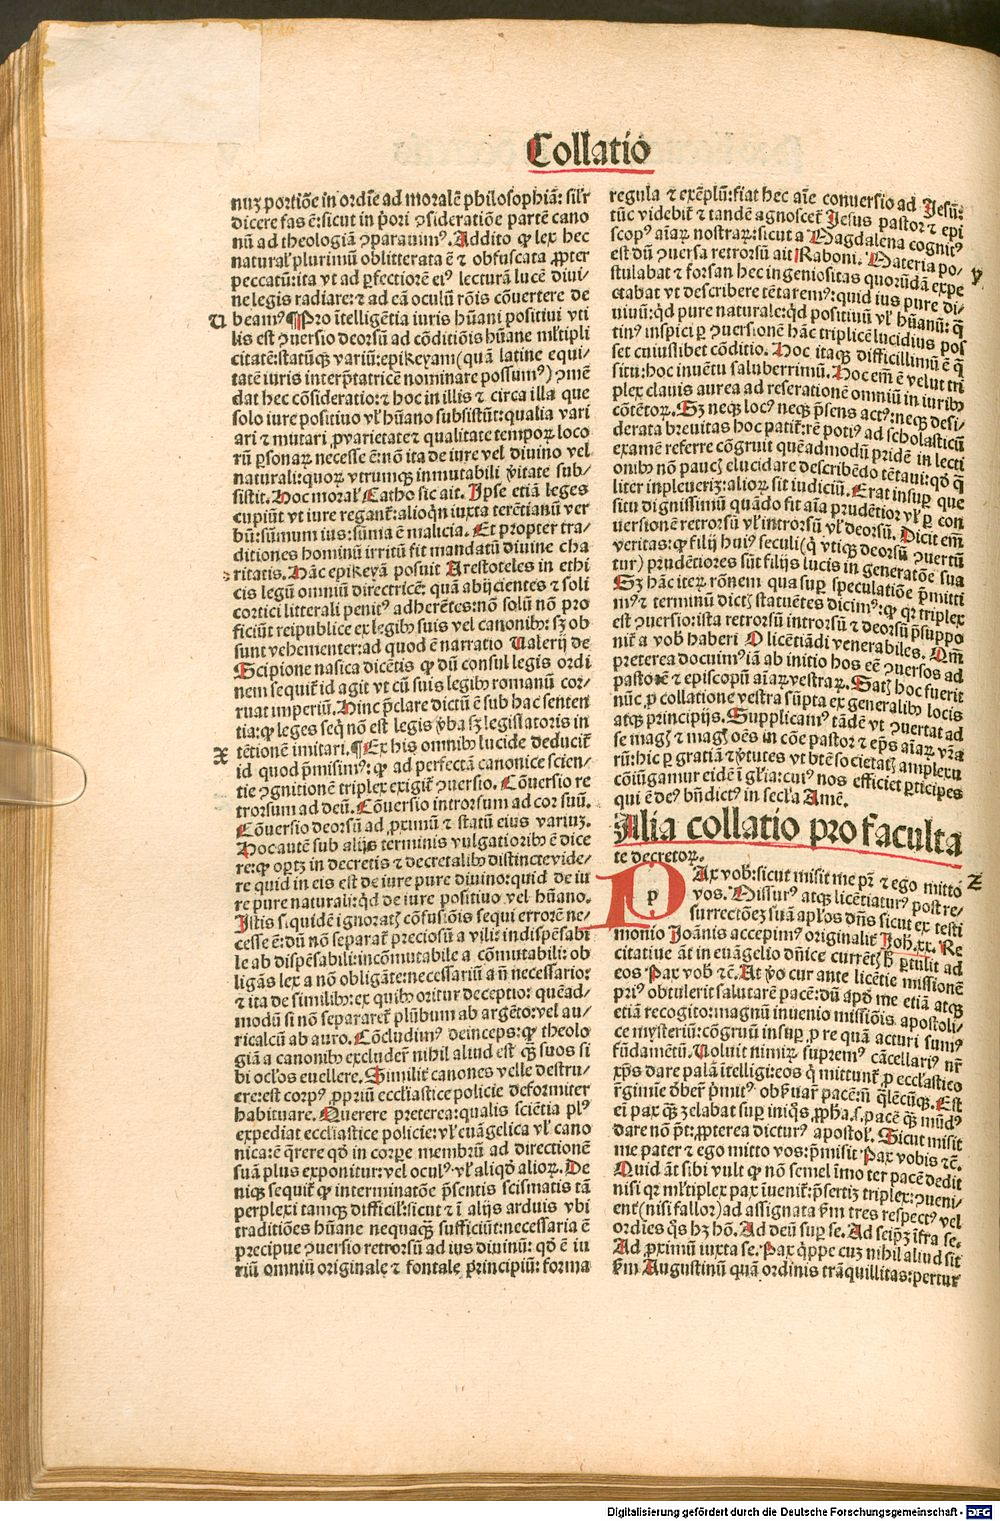 Collatio
nuʒ portiõe in ordĩe ad moralẽ philosophiã: sil'r
dicere fas ẽ: sicut in p̃ori ꝯsideratiõe partẽ cano
nũ ad theologiã ꝯparauimꝰ. Addito ꝙ lex hec
natural' plurimũ oblitterata ẽ ⁊ obfuscata ꝓpter
peccatũ: ita vt ad ꝑfectiorẽ eiꝰ lecturã lucẽ diui⸗
ne legis radiare: ⁊ ad eã oculũ rõis cõuertere de
U
beamꝰ ¶Pro ĩtelligẽtia iuris hũani positiui vti
lis est ꝯuersio deorsũ ad cõditiõis hũane ml'tipli
citatẽ: statũqꝫ variũ: epikeyam (quã latine equi⸗
tatẽ iuris interp̃tatricẽ nominare possumꝰ) ꝯmẽ
dat hec cõsideratio: ⁊ hoc in illis ⁊ circa illa que
solo iure positiuo vl' hũano subsistũt: qualia vari
ari ⁊ mutari ꝓ varietate ⁊ qualitate tempoꝝ loco
rũ ꝑsonaꝝ necesse ẽ: nõ ita de iure vel diuino vel
naturali: quoꝝ vtrumqꝫ inmutabili ṽitate sub⸗
sistit. Hoc moral' Catho sic ait. Ipse etiã leges
cupiũt vt iure regant̃: alioq̃n iuxta terẽtianũ ver
bũ: sũmum ius: sũma ẽ malicia. Et propter tra⸗
ditiones hominũ irritũ fit mandatũ diuine cha
ritatis. Hãc epikeyã posuit Arestoteles in ethi
cis legũ omniũ directricẽ: quã abijcientes ⁊ soli
cortici litterali penitꝰ adherẽtes: nõ solũ nõ pro
ficiũt reipublice ex legibꝫ suis vel canonibꝫ: sꝫ ob
sunt vehementer: ad quod ẽ narratio Valerij de
Scipione nasica dicẽtis ꝙ dũ consul legis ordi
nem sequit̃ id agit vt cũ suis legibꝫ romanũ cor⸗
ruat imperiũ. Hinc p̃clare dictũ ẽ sub hac senten
tia: ꝙ leges seq̃ nõ est legis ṽba sꝫ legislatoris in
X
tẽtionẽ imitari. ¶Ex his omnibꝫ lucide deducit̃
id quod p̃misimꝰ: ꝙ ad perfectã canonice scien⸗
tie ꝯgnitionẽ triplex exigit̃ ꝯuersio. Cõuersio re
trorsum ad deũ. Cõuersio introrsum ad cor suũ.
Cõuersio deorsũ ad ꝓximũ ⁊ statũ eius variuʒ.
Hoc autẽ sub alijs terminis vulgatioribꝫ ẽ dice
re: ꝙ oportꝫ in decretis ⁊ decretalibꝫ distincte vide⸗
re quid in eis est de iure pure diuino: quid de iu
re pure naturali: q̃d de iure positiuo vel hũano.
Istis s.quidẽ ignoratꝭ cõfusiõis sequi errorẽ ne⸗
cesse ẽ: dũ nõ separat̃ preciosũ a vili: indispẽsabi
le ab dispẽsabili: incõmutabile a cõmutabili: ob
ligãs lex a nõ obligãte: necessariũ a ñ necessario:
⁊ ita de similibꝫ: ex quibꝫ oritur deceptio: quẽad⸗
modũ si nõ separaret̃ plũbum ab argẽto: vel au⸗
ricalcũ ab auro. Cõcludimꝰ deinceps: ꝙ theolo
giã a canonibꝫ excluder̃ nihil aliud est qꝫ suos si
bi ocl'os euellere. Similit̃ canones velle destru⸗
ere: est corpꝰ ꝓpriũ eccl'iastice policie deformiter
habituare. Querere preterea: qualis sciẽtia plꝰ
expediat eccl'iastice policie: vl' euãgelica vl' cano
nica: ẽ q̃rere qđ in corpe membrũ ad directionẽ
suã plus exponitur: vel oculꝰ vl' aliqđ alioꝝ. De
niqꝫ sequit̃ ꝙ interminatõe p̃sentis scismatis tã
perplexi tamqꝫ difficil': sicut ⁊ ĩ alijs arduis vbi
traditiões hũane nequaqꝫ sufficiũt: necessaria ẽ
ꝑrecipue ꝯuersio retrorsũ ad ius diuinũ: qđ ẽ iu
riũ omniũ originale ⁊ fontale principiũ: forma
regula ⁊ exẽplũ: fiat hec aĩe conuersio ad Jesũ:
tũc videbit̃ ⁊ tandẽ agnoscet̃ Jesus pastor ⁊ epi
scopꝰ aĩaꝝ nostraꝝ: sicut a Magdalena cognitꝰ
est dũ ꝯuersa retrorsũ ait Raboni. Materia po⸗
y
stulabat ⁊ forsan hec ingeniositas quorũdã expe
ctabat vt describere tẽtaremꝰ: quid ius pure di⸗
uinũ: q̃d pure naturale: q̃d positiuũ vl' hũanũ: q̃
tinꝰ inspici ꝑ ꝯuersionẽ hãc triplicẽ lucidius pos
set cuiuslibet cõditio. Hoc itaqꝫ difficillimũ ẽ q̃
situ: hoc inuẽtu saluberrimũ. Hoc em̃ ẽ velut tri
plex clauis aurea ad reserationẽ omniũ in iuribꝫ
cõtẽtoꝝ. Sꝫ neqꝫ locꝰ neqꝫ p̃sens actꝰ: neqꝫ desi⸗
derata breuitas hoc patit̃: rẽ potiꝰ ad scholasticũ
examẽ referre cõgruit quẽadmodũ pridẽ in lecti
onibꝫ nõ paucꝭ elucidare describẽdo tẽtaui: qđ q̃
liter inpleueriʒ: alioꝝ sit iudiciũ. Erat insuꝑ que
situ dignissimũ quãdo fit aĩa prudẽtior vl' ꝑ con
uersionẽ retrorsũ vl' introrsũ vl' deorsũ. Dicit em̃
veritas: ꝙ filij huiꝰ seculi (q̃ vtiqꝫ deorsũ ꝯuertũ
tur) prudẽtiores sũt filijs lucis in generatõe sua
Sꝫ hãc iteꝝ rõnem qua suꝑ speculatiõe p̃mitti
mꝰ ⁊ terminũ dictꝭ statuẽtes dicimꝰ: ꝙ qꝛ triplex
est ꝯuersio: ista retrorsũ introrsũ ⁊ deorsũ p̃suppo
nit̃ a vob̃ haberi O licẽtiãdi venerabiles. Qm̃
preterea docuimꝰ iã ab initio hos eẽ ꝯuersos ad
pastorẽ ⁊ episcopũ aĩaꝝ vestraꝝ. Satꝭ hoc fuerit
nũc ꝓ collatione vestra sũpta ex generalibꝫ locis
atqꝫ principijs. Supplicamꝰ tãdẽ vt ꝯuertat ad
se magꝭ ⁊ magꝭ oẽs in cõe pastor ⁊ ep̃s aĩaꝝ vr̃a
rũ: hic ꝑ gratiã ⁊ ṽtutes vt btẽ societatꝭ amplexu
cõiũgamur eidẽ ĩ gl'ia: cuiꝰ nos efficiet ꝑticipes
qui ẽ deꝰ bñdictꝰ in secl'a Amẽ.
Alia collatio pro faculta
te decretoꝝ.
z
PAx vob̃: sicut misit me pr̃ ⁊ ego mitto
vos. Missurꝰ atqꝫ licẽtiaturꝰ post re⸗
surrectõeʒ suã apl'os dñs sicut ex testi
monio Joãnis accepimꝰ originalit̃ Joh.xx. Re
citatiue ãt in euãgelio dñice currẽtꝭ h̃ ꝑtulit ad
eos Pax vob̃ ⁊c̃. At ṽo cur ante licẽtie missionẽ
priꝰ obtulerit salutarẽ pacẽ: dũ apđ me etiã atqꝫ
etiã recogito: magnũ inuenio missiõis apostoli⸗
ce mysteriũ: cõgruũ insuꝑ ꝓ re quã acturi sumꝰ
fũdamẽtũ. Voluit nimiꝝ supremꝰ cãcellariꝰ nr̃
xp̃s dare palã ĩtelligi: eos q̃ mittunt̃ ꝓ eccl'astico
r̃gimie ðber̃ p̃mitꝰ obũuar̃ pacẽ: ñ q̃lẽcũqꝫ. Est
eĩ pax qꝫ zelabat suꝑ iniq̃s, ꝓph̃a.s.pacẽ qꝫ mũdꝰ
dare nõ p̃t: ꝓpterea dictur̃ apostol'. Sicut misit
me pater ⁊ ego mitto vos: p̃misit Pax vobis ⁊c̃.
Quid ãt sibi vult ꝙ nõ semel ĩmo ter pacẽ dedit
nisi qꝛ ml'tiplex pax ĩuenit̃: p̃sertiʒ triplex: ꝯueni⸗
ent (nisi fallor) ad assignata ẜm tres respectꝰ vel
ordĩes q̃s hꝫ hõ. Ad deũ suꝑ se. Ad seip̃ʒ ĩfra se.
Ad ꝓximũ iuxta se. Pax q̃ppe cuʒ nihil aliud sit
ẜm Augustinũ quã ordinis trãquillitas: pertur
Digitalisierung gefördert durch die Deutsche Forschungsgemeinschaft - DFG